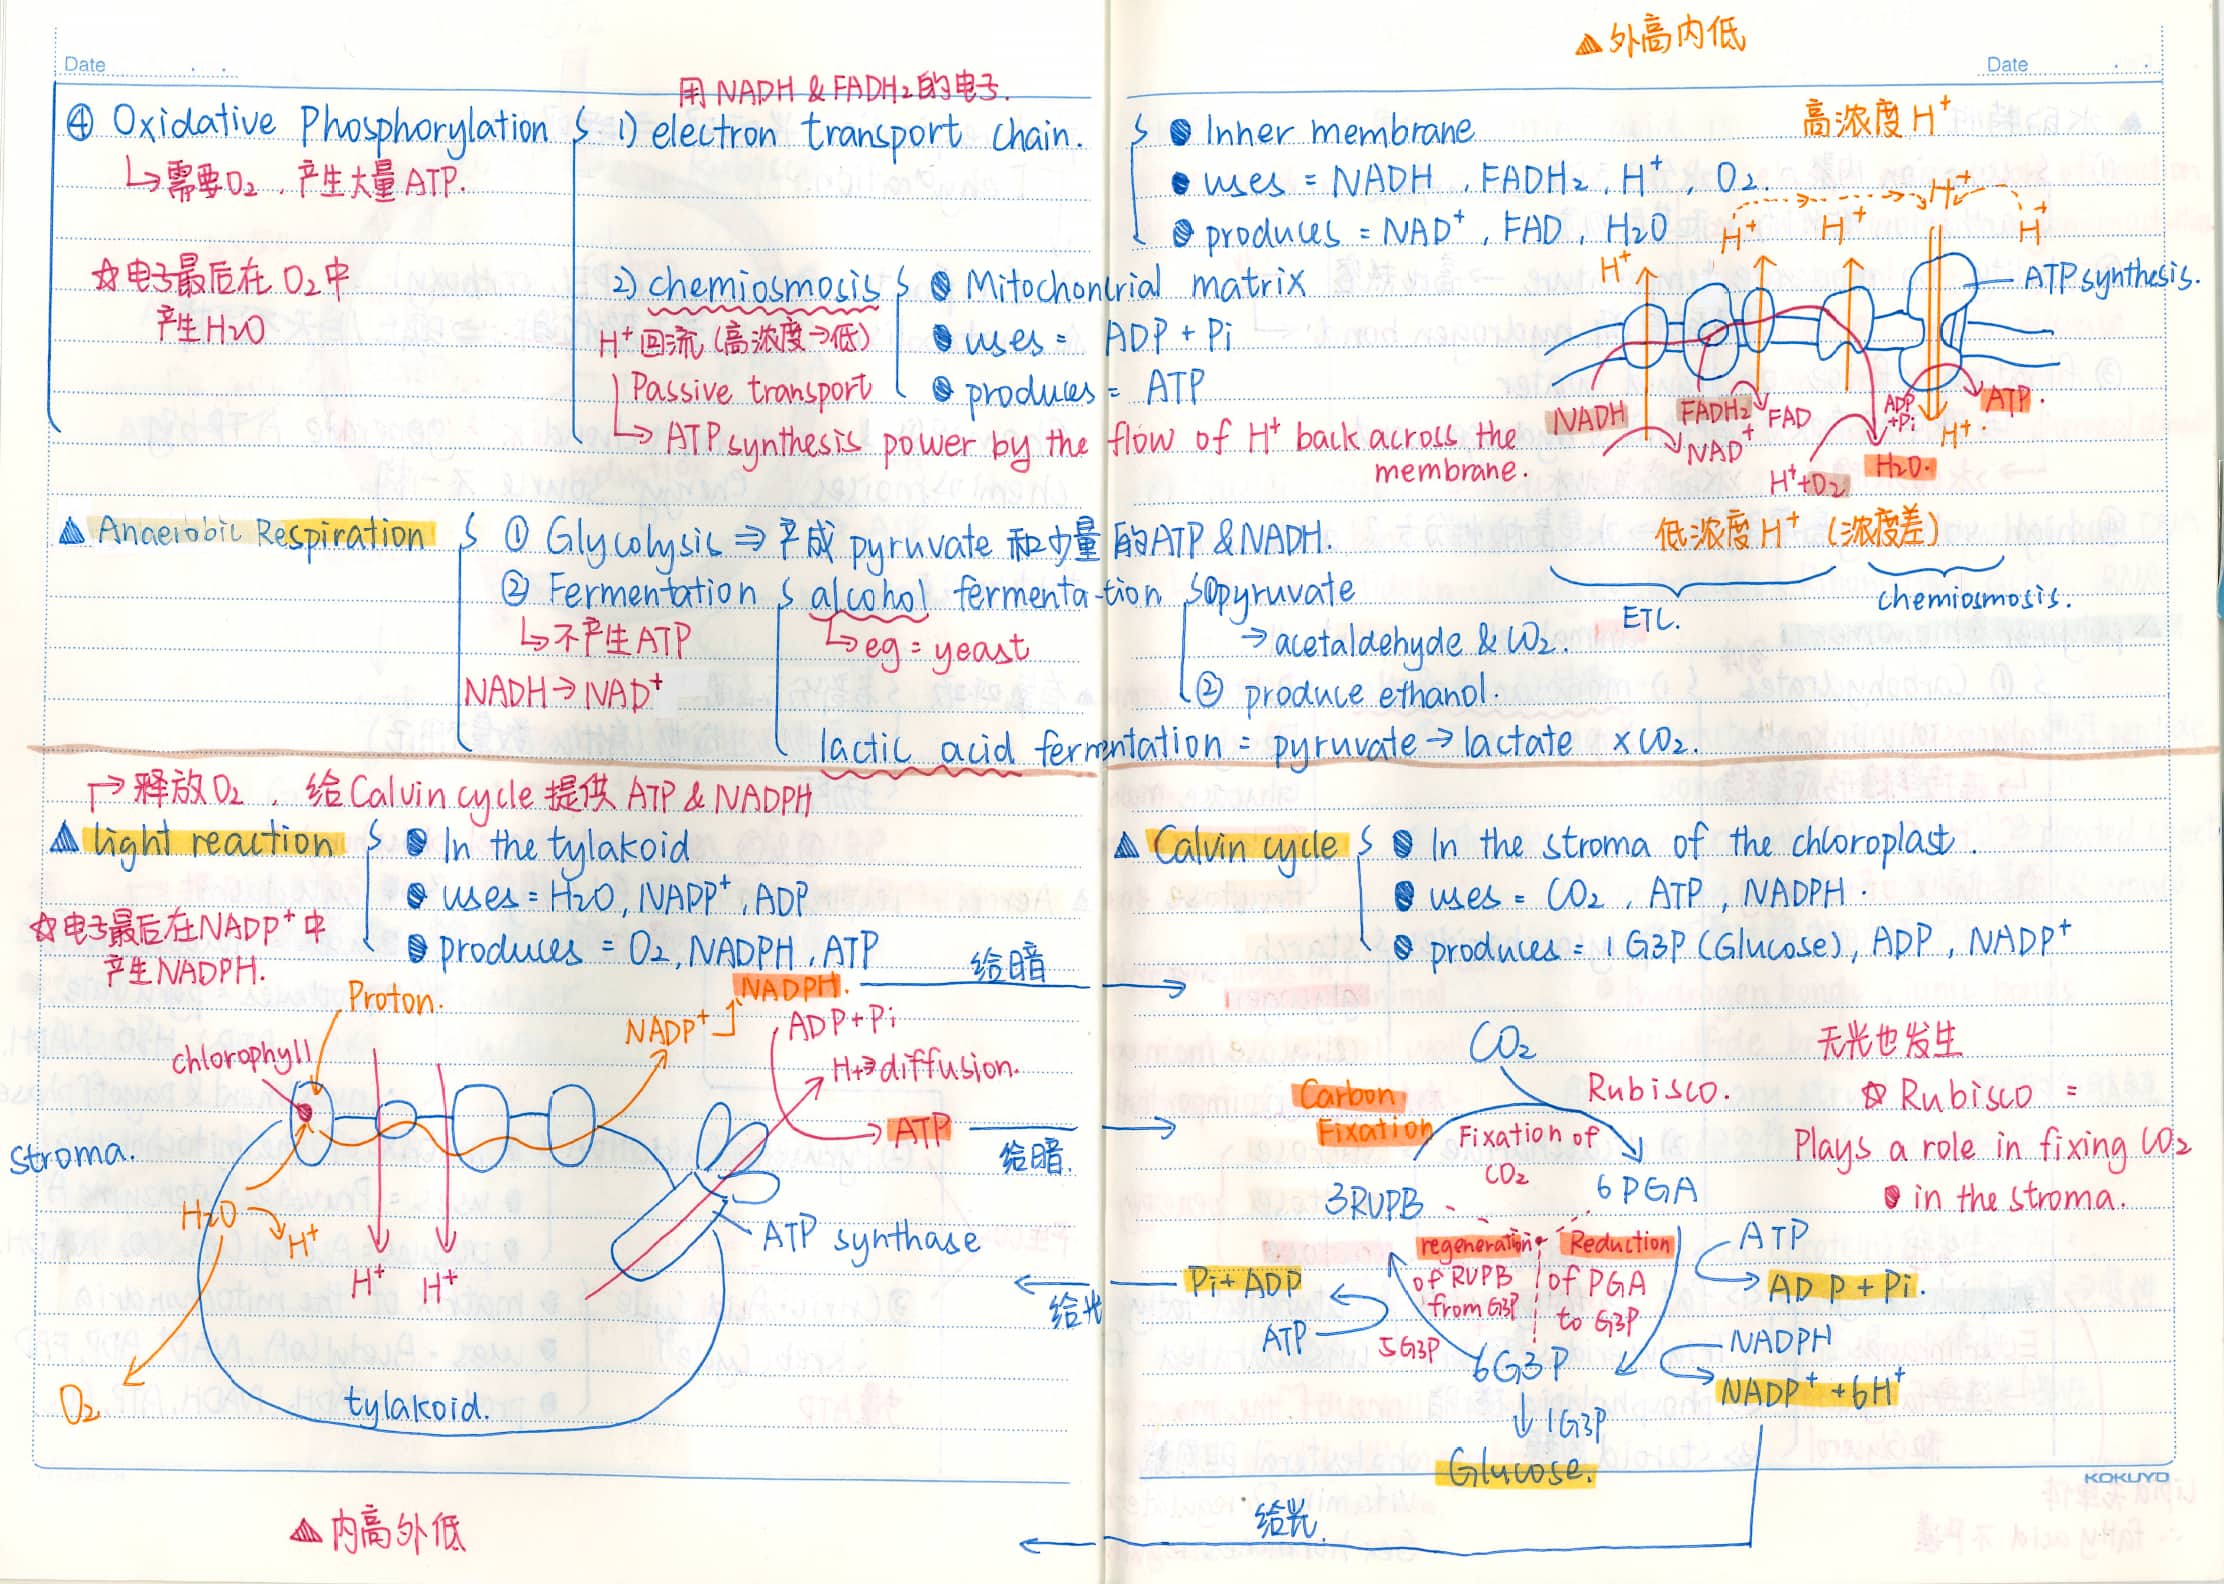 Date
④ Oxidative Phosphorylation
↳需要O₂，产生大量ATP.
☆电子最后在O₂中
产生H₂O
用NADH & FADH₂的电子.
1) electron transport chain.
● Inner membrane
● uses = NADH , FADH₂ , H⁺ , O₂.
● produces = NAD⁺ , FAD , H₂O
2) chemiosmosis
H⁺回流 (高浓度→低)
Passive transport
↳ ATP synthesis power by the flow of H⁺ back across the
membrane.
● Mitochontrial matrix
● uses = ADP + Pi
● produces = ATP
▲外高内低
Date
高浓度H⁺
H⁺
H⁺
H⁺
H⁺
H⁺
ATP synthesis.
NADH
NAD⁺
FADH₂
FAD
H⁺+O₂
H₂O.
ADP
+Pi
H⁺.
ATP.
低浓度H⁺ (浓度差)
ETC.
chemiosmosis.
▲ Anaeiobic Respiration
① Glycolysis ⇒ 产成 pyruvate 和少量的ATP & NADH.
② Fermentation
↳不产生ATP
NADH→NAD⁺
alcohol fermenta-tion
↳eg = yeast
①pyruvate
→acetaldehyde & CO₂.
② produce ethanol.
lactic acid fermentation = pyruvate → lactate ×CO₂.
→释放O₂ , 给Calvin cycle提供 ATP & NADPH
▲ light reaction
● In the tylakoid
● uses = H₂O, NAPP⁺, ADP
● produces = O₂, NADPH, ATP
☆电子最后在NADP⁺中
产生NADPH.
Proton.
chlorophyll
stroma.
H₂O
H⁺
H⁺
H⁺
O₂
tylakoid.
NADP⁺
NADPH.
ADP+Pi
H+→diffusion.
ATP
ATP synthase
给暗
给暗.
▲内高外低
▲ Calvin cycle
● In the stroma of the chloroplast.
● uses = CO₂ , ATP , NADPH.
● produces = 1 G3P (Glucose), ADP , NADP⁺
CO₂
Rubisco.
Carbon
Fixation
Fixation of
CO₂
3RUPB
6 PGA
regeneration
of RUPB
from G3P
Reduction
of PGA
to G3P
Pi+ADP
给光
ATP
5G3P
6G3P
↓ 1G3P
Glucose.
ATP
ADP+Pi.
NADPH
NADP⁺ +6H⁺
给光.
无光也发生
☆ Rubisco =
Plays a role in fixing CO₂
● in the stroma.
KOKUYO